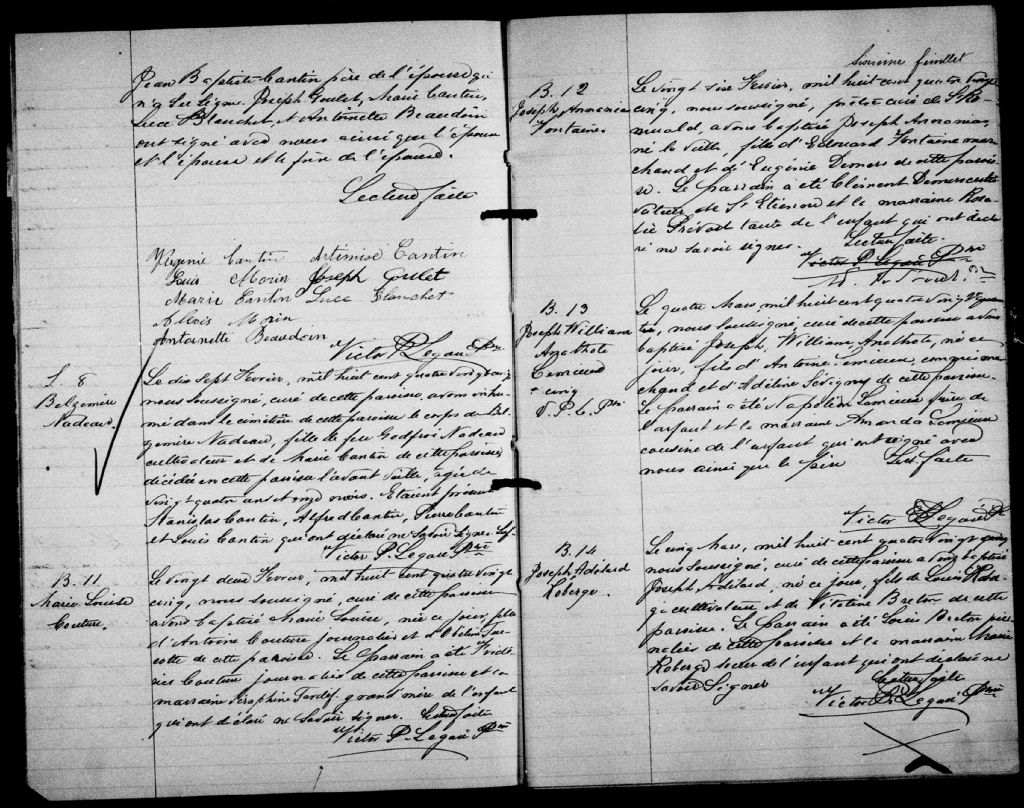 Jean Baptiste Cantin père de l'épouse qui
Joseph Goulet, Marie Cantin,
Luce Blanchet, et Antoinette Beaudoin
ont signé avec nous ainsi que l'époux
et l'épouse et le père de l'épouse.
Lecture faite
Virginie Cantin Artémise Cantin
Louis Morin Joseph Goulet
Marie Cantin Luce Blanchet
Alexis Morin
Antoinette Beaudoin
Victor P. Legaré Ptre
S. 8
Belzemire
Nadeau.
Le dix Sept Fevrier, mil huit cent quatre vingt cinq
nous soussigné, curé de cette paroisse, avons inhu-
mé dans le cimetière de cette paroisse le corps de Bel-
zemire Nadeau, fille de feu Godfroi Nadeau
cultivateur et de Marie Cantin de cette paroisse
décédée en cette paroisse l'avant veille, agée de
vingt quatre ans et onze mois. Etaient présents
Stanislas Cantin, Alfred Cantin, Pierre Cantin
et Louis Cantin qui ont déclaré ne savoir signer.
Victor P. Legaré Ptre
B. 11
Marie Louise
Couture.
Le vingt deux Fevrier, mil huit cent quatre vingt
cinq, nous soussigné, curé de cette paroisse
avons baptisé Marie Louise, née ce jour, fille
d'Antoine Couture journalier et d'
cotte de cette paroisse. Le parrain a été
Couture journalier de cette paroisse et la
marraine Séraphine Tardif grand'mère de l'enfant
qui ont déclaré ne savoir signer. Lecture faite
Victor P. Legaré Ptre
feuillet
B. 12
Joseph Annanias
Fontaine
Le vingt six Fevrier, mil huit cent quatre vingt
cinq, nous soussigné, prêtre curé de St Ro-
muald, avons baptisé Joseph Annanias,
né la veille, fils d'Edouard Fontaine mar-
chand et d'Eugénie Demers de cette parois-
se. Le parrain a été Clément Demers culti-
vateur de St Etienne et la marraine Rosa-
lie Prévost tante de l'enfant qui ont décla-
ré ne savoir signer. Lecture faite.
Victor P. Legaré Ptre
B. 13
Joseph William
Anathole
Lemieux
+ cinq
V. P. L. Ptre
Le quatre Mars, mil huit cent quatre vingt
nous soussigné, curé de cette paroisse avons
baptisé Joseph, William Anathole, né ce
jour, fils d'Antoine Lemieux, commis mar-
chand et d'Adeline Sévigny de cette paroisse.
Le parrain a été Napoléon Lemieux frère de
l'enfant et la marraine Amanda Lemieux
cousine de l'enfant qui ont signé avec
nous ainsi que le père Lect. faite
Victor P. Legaré Ptre
B. 14
Joseph Adélard
Roberge.
Le cinq Mars, mil huit cent quatre vingt cinq
nous soussigné, curé de cette paroisse avons baptisé
Joseph Adélard, né ce jour, fils de Louis Rober-
ge cultivateur et de Vitaline Breton de cette
paroisse. Le parrain a été Louis Breton jour-
nalier de cette paroisse et la marraine Marie
Roberge soeur de l'enfant qui ont déclaré ne
savoir signer Lecture faite
Victor P. Legaré Ptre